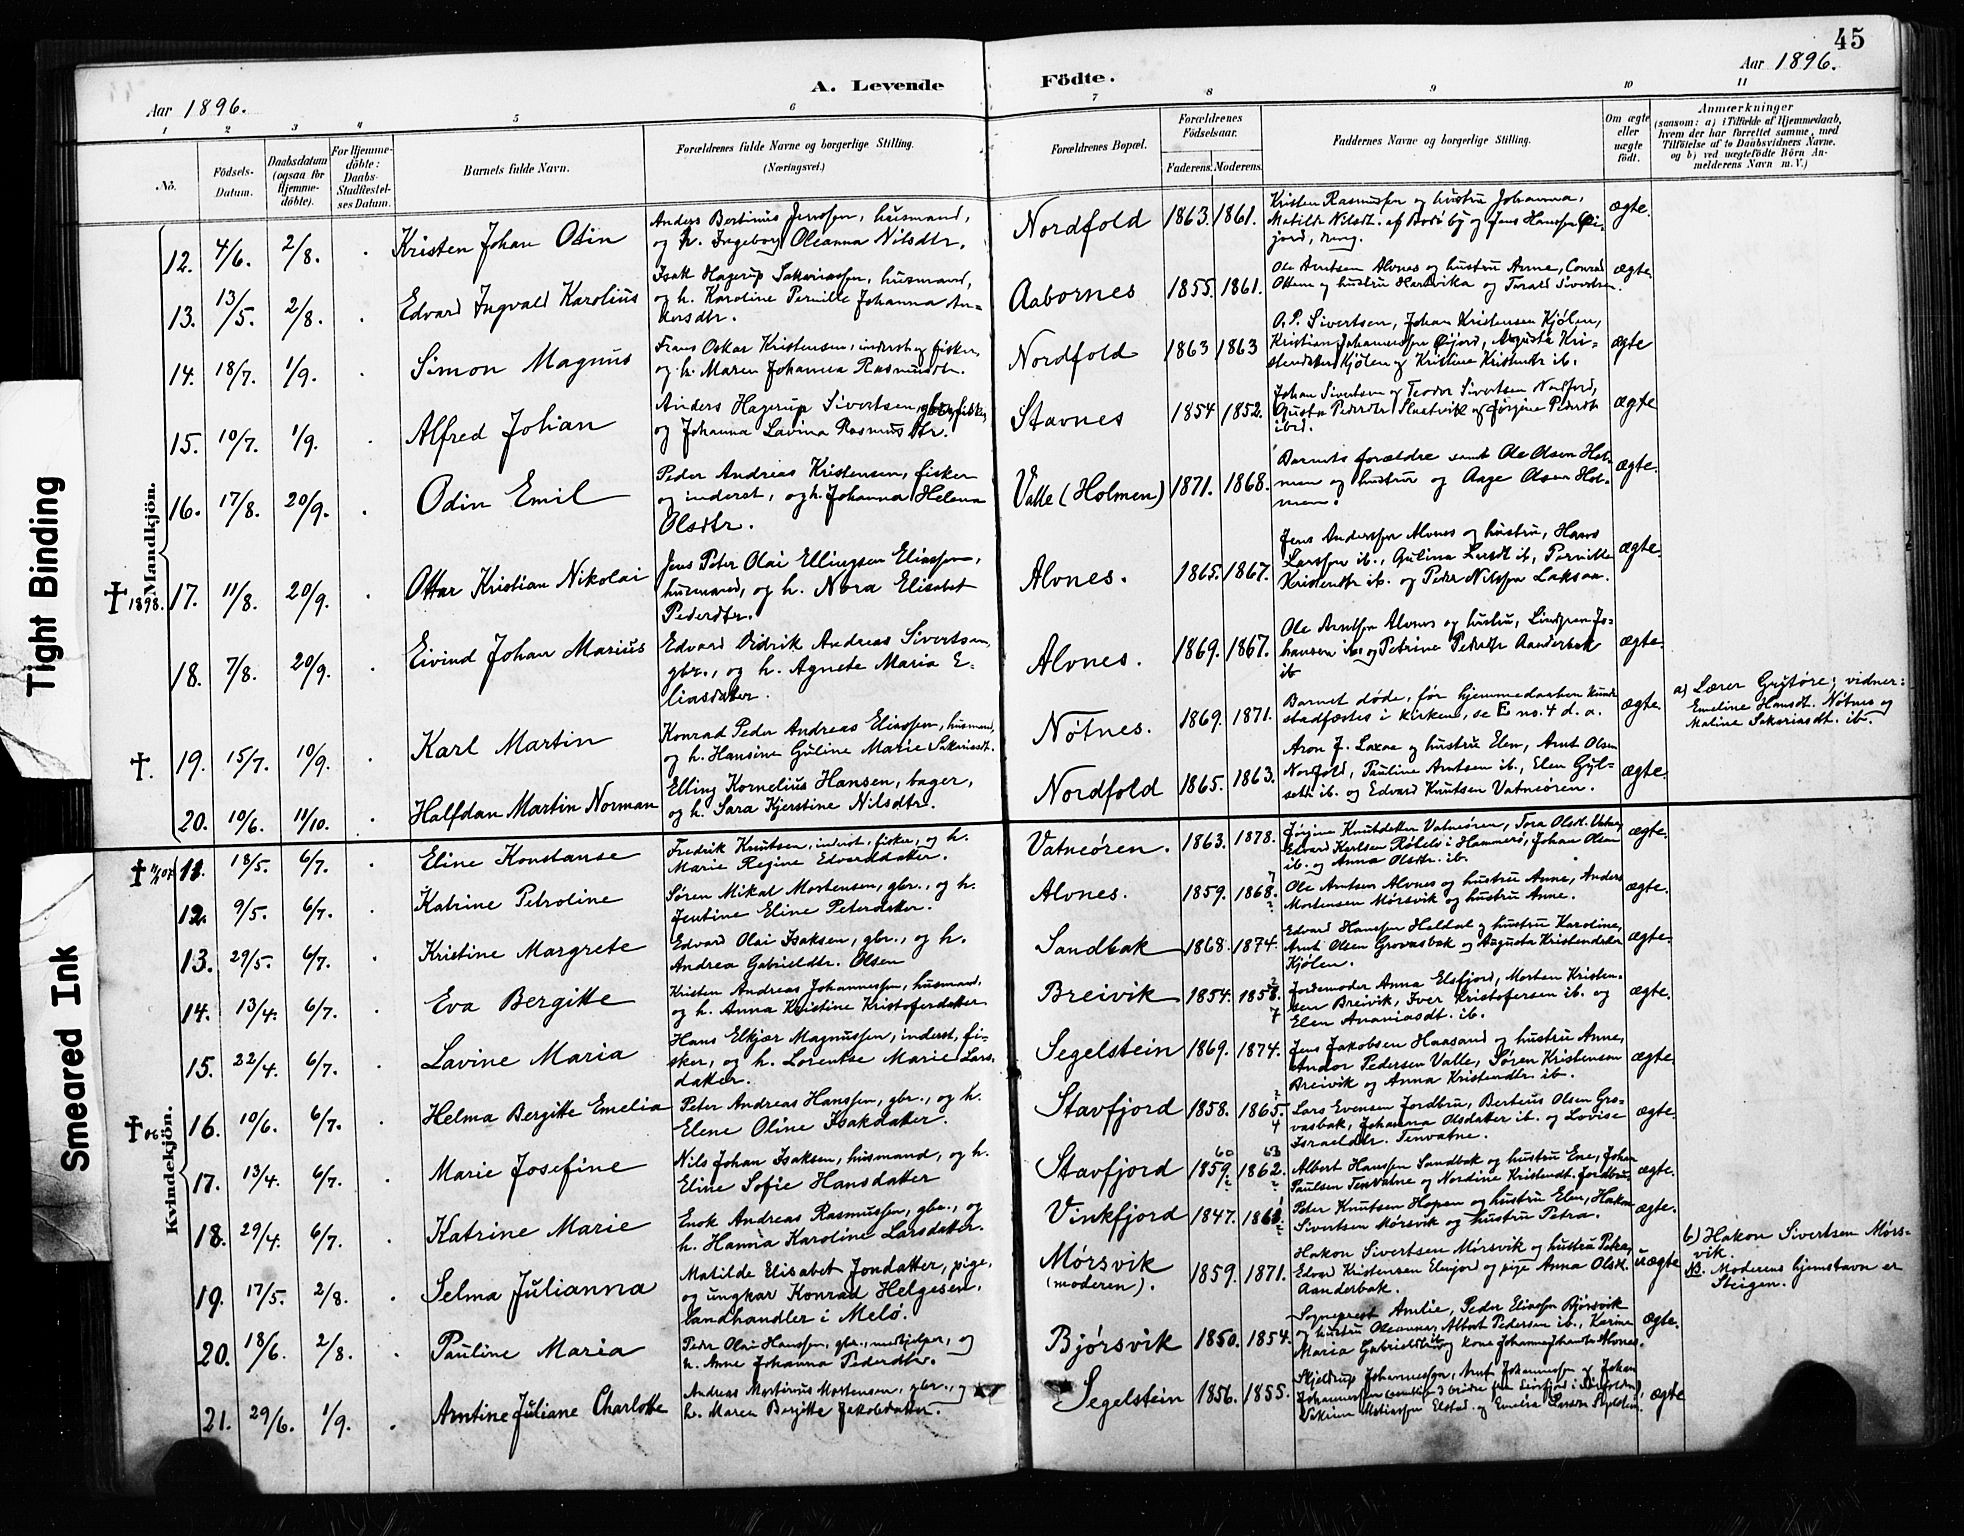 45
Aar 1896.
A. Levende Födte.
Aar 1896.
1 2 3 4 5 6 7 8 9 10 11
No.
Födsels-Datum.
Daabsdatum (ogsaa for Hjemme-döbte).
For Hjemme-döbte: Daabs-Stadfæstel-ses Datum.
Barnets fulde Navn.
Forældrenes fulde Navne og borgerlige Stilling. (Næringsvei.)
Forældrenes Bopæl.
Forældrenes Födselsaar.
Faderens. Moderens.
Faddernes Navne og borgerlige Stilling.
Om ægte eller uægte födt.
Anmærkninger
(saasom: a) i Tilfælde af Hjemmedaab, hvem der har forrettet samme, med Tilföielse af to Daabsvidners Navne, og b) ved uægtefödte Börn Anmelderens Navn m. V.)
Mandkjön.
12. 4/6. 2/8. Kristen Johan Odin
Anders Bertinus Jenssen, husmand,
og h. Ingeborg Oleanna Nilsdtr.
Nordfold 1863. 1861.
Kristen Rasmussen og hustru Johanna,
Matilde Nilsdt. af Bodö by og Jens Hanssen
ægte.
13. 13/5. 2/8. Edvard Ingvald Karolius
Isak Hagerup Sakariassen, husmand,
og h. Karoline Pernille Johanna An-
kersdtr.
Aabornes 1855. 1861.
Ole Arntsen Alvnes og hustru Anne, Conrad
og hustru Hartvika og Torald Sivertsen.
ægte.
14. 18/7. 1/9. Simon Magnus
Frans Oskar Kristensen, inderst og fisker,
og h. Maren Johanna Rasmusdtr.
Nordfold 1863 1863
O. P. Sivertsen, Johan Kristensen Kjölen,
Kristian Johannessen Öijord, Augusta Kri-
stensdatter Kjölen og Kristine Kristensdtr ib.
ægte
15. 10/7. 1/9. Alfred Johan
Anders Hagerup Sivertsen, gbr. og fisker,
og Johanna Lavina Rasmusdtr.
Stavnes 1854 1852.
Johan Sivertsen og Teodor Sivertsen Nordfold,
Gusta Pedersdtr og Jörgine Pedersdt
ibid.
ægte
16. 17/8. 20/9. Odin Emil
Peder Andreas Kristensen, fisker
og inderst, og h. Johanna Helena
Olsdtr.
Valle (Holmen) 1871. 1868.
Barnets forældre samt Ole Olsen Hol-
men og hustru og Aage Olsen Hol-
men.
ægte.
† 1898. 17. 11/8. 20/9. Ottar Kristian Nikolai
Jens Peter Olai Ellingsen Eliassen,
husmand, og h. Nora Elisabet
Pedersdtr.
Alvnes. 1865. 1867.
Jens Anderssen Alvnes og hustru, Hans
Larssen ib., Gulina Larsdt ib., Pernille
Kristensdtr ib. og Peder Nilssen Laksaa.
ægte.
18. 7/8. 20/9. Eivind Johan Marius
Edvard Didrik Andreas Sivertsen,
gbr., og h. Agnete Maria E-
liasdatter.
Alvnes. 1869. 1867.
Ole Arntsen Alvnes og hustru, Lindgren Jo-
hansen ib. og Petrine Pedersdtr Aanderbak
ib
ægte.
†. 19. 15/7. 10/9. Karl Martin
Konrad Peder Andreas Eliassen, husmand,
og h. Hansine Guline Marie Sakariasdt.
Nötnes. 1869. 1871.
Barnet döde, för hjemmedaaben kunde
stadfæstes i kirken, se E no. 4 d. a.
ægte.
a) Lærer Grytöre; vidner:
Emeline Hansdt. Nötnes og
Maline Sakariasdt. ib.
20. 10/6. 11/10. Halfdan Martin Norman
Elling Kornelius Hansen, bager,
og h. Sara Kjerstine Nilsdtr.
Nordfold 1865. 1863.
Aron J. Laxaa og hustru Elen, Arnt Olsen
Norfold, Pauline Arntsen ib., Elen Gyl-
seth ib. og Edvard Knutsen Vatneören.
ægte.
Kvindekjön.
11. 18/5. 6/7. Eline Konstanse
Fredrik Knutsen, inderst, fisker, og h.
Marie Regine Edvardsdatter.
Vatneören. 1863. 1878.
Jörgine Knutdatter Vatneören, Tora Olsdt.
Edvard Karlsen Röbelö i Hammerö, Johan Olsen
ib. og Anna Olsdtr. ib.
ægte.
12. 9/5. 6/7. Katrine Petroline
Sören Mikal Mortensen, gbr., og h.
Jentine Eline Petersdatter.
Alvnes. 1859. 1868.
Ole Arntsen Alvnes og hustru Anne, Anders
Mortensen Mörsvik og hustru Anne.
ægte.
13. 29/5. 6/7. Kristine Margrete
Edvard Olai Isaksen, gbr., og h.
Andrea Gabrieldtr. Olsen
Sandbak 1868. 1874.
Edvard Hanssen Heldal og hustru Karoline,
Arnt Olsen Grovasbak og Augusta Kristensdatter
Kjölen.
ægte.
14. 13/4. 6/7. Eva Bergitte
Kristen Andreas Johannessen, husmand,
og h. Anna Kristine Kristofersdatter
Breivik 1854. 1858.
Jordemoder Anna Elsfjord, Morten Kristen-
sen Breivik, Iver Kristofersen ib. og
Elen Ananiasdt. ib.
ægte.
15. 22/4. 6/7. Lavine Maria
Hans Elkjær Magnussen, inderst, fi-
sker, og h. Lorentse Marie Lars-
datter.
Segelstein 1869. 1874.
Jens Jakobsen Haasand og hustru Anne,
Andor Pedersen Valle, Sören Kristensen
Breivik og Anna Kristensdtr. ib.
ægte.
† 06 16. 10/6. 6/7. Helma Bergitte Emelia
Peter Andreas Hanssen, gbr., og h.
Elene Oline Isaksdatter.
Stavfjord 1858. 1865.
Lars Evensen Fordbru, Berteus Olsen Gro-
vasbak, Johanna Olsdatter ib. og Lovise
Israelsdtr. Tennvatne.
ægte.
17. 13/4. 6/7. Marie Josefine
Nils Johan Isaksen, husmand, og h.
Eline Sofie Hansdatter
Stavfjord 1859. 1862.
60 63
Albert Hanssen Sandbak og hustru Ene, Johan
Paulsen Tenvatne og Nordine Kristensdt. Fordbru.
ægte.
18. 29/4. 6/7. Katrine Marie
Enok Andreas Rasmussen, gbr., og
h. Hanna Karoline Larsdatter.
Vinkfjord 1847.
Peter Knutsen Hopen og hustru Elen, Hakon
Sivertsen Mörsvik og hustru Petra.
ægte.
19. 17/5. 2/8. Selma Julianna
Matilde Elisabet Jondatter, pige,
og ungkar Konrad Helgesen,
landhandler i Melö.
Mörsvik
(moderen).
1859. 1871.
Hakon Sivertsen Mörsvik og hustru Petra,
Edvard Kristensen Elvfjord og pige Anna Olsdt.
Aanderbak.
uægte
b) Hakon Sivertsen Mörs-
vik.
NB. Moderens hjemstavn er
Steigen.
20. 18/6. 2/8. Pauline Maria
Peder Olai Hanssen, gbr., medhjelper, og
h. Anne Johanna Pedersdtr.
Björsvik 1850. 1854.
Sogneprest Amlie, Peder Eliassen Björsvik
og hustru Oleanna, Albert Pedersen ib., Karine
Maria Gabrielsdtr ib. og kone Johanna Alvnes.
ægte.
21. 29/6. 1/9. Arntine Juliane Charlotte
Andreas Martinus Mortensen, gbr., og
h. Maren Bergitte Jakobsdatter.
Segelstein 1856. 1855.
Skjeldrup Johannessen, Arnt Johannessen og Johan
Johannessen
Mattiassen Elstad og Emelie Larsen Segelstein.
ægte
Tight Binding
Smeared Ink